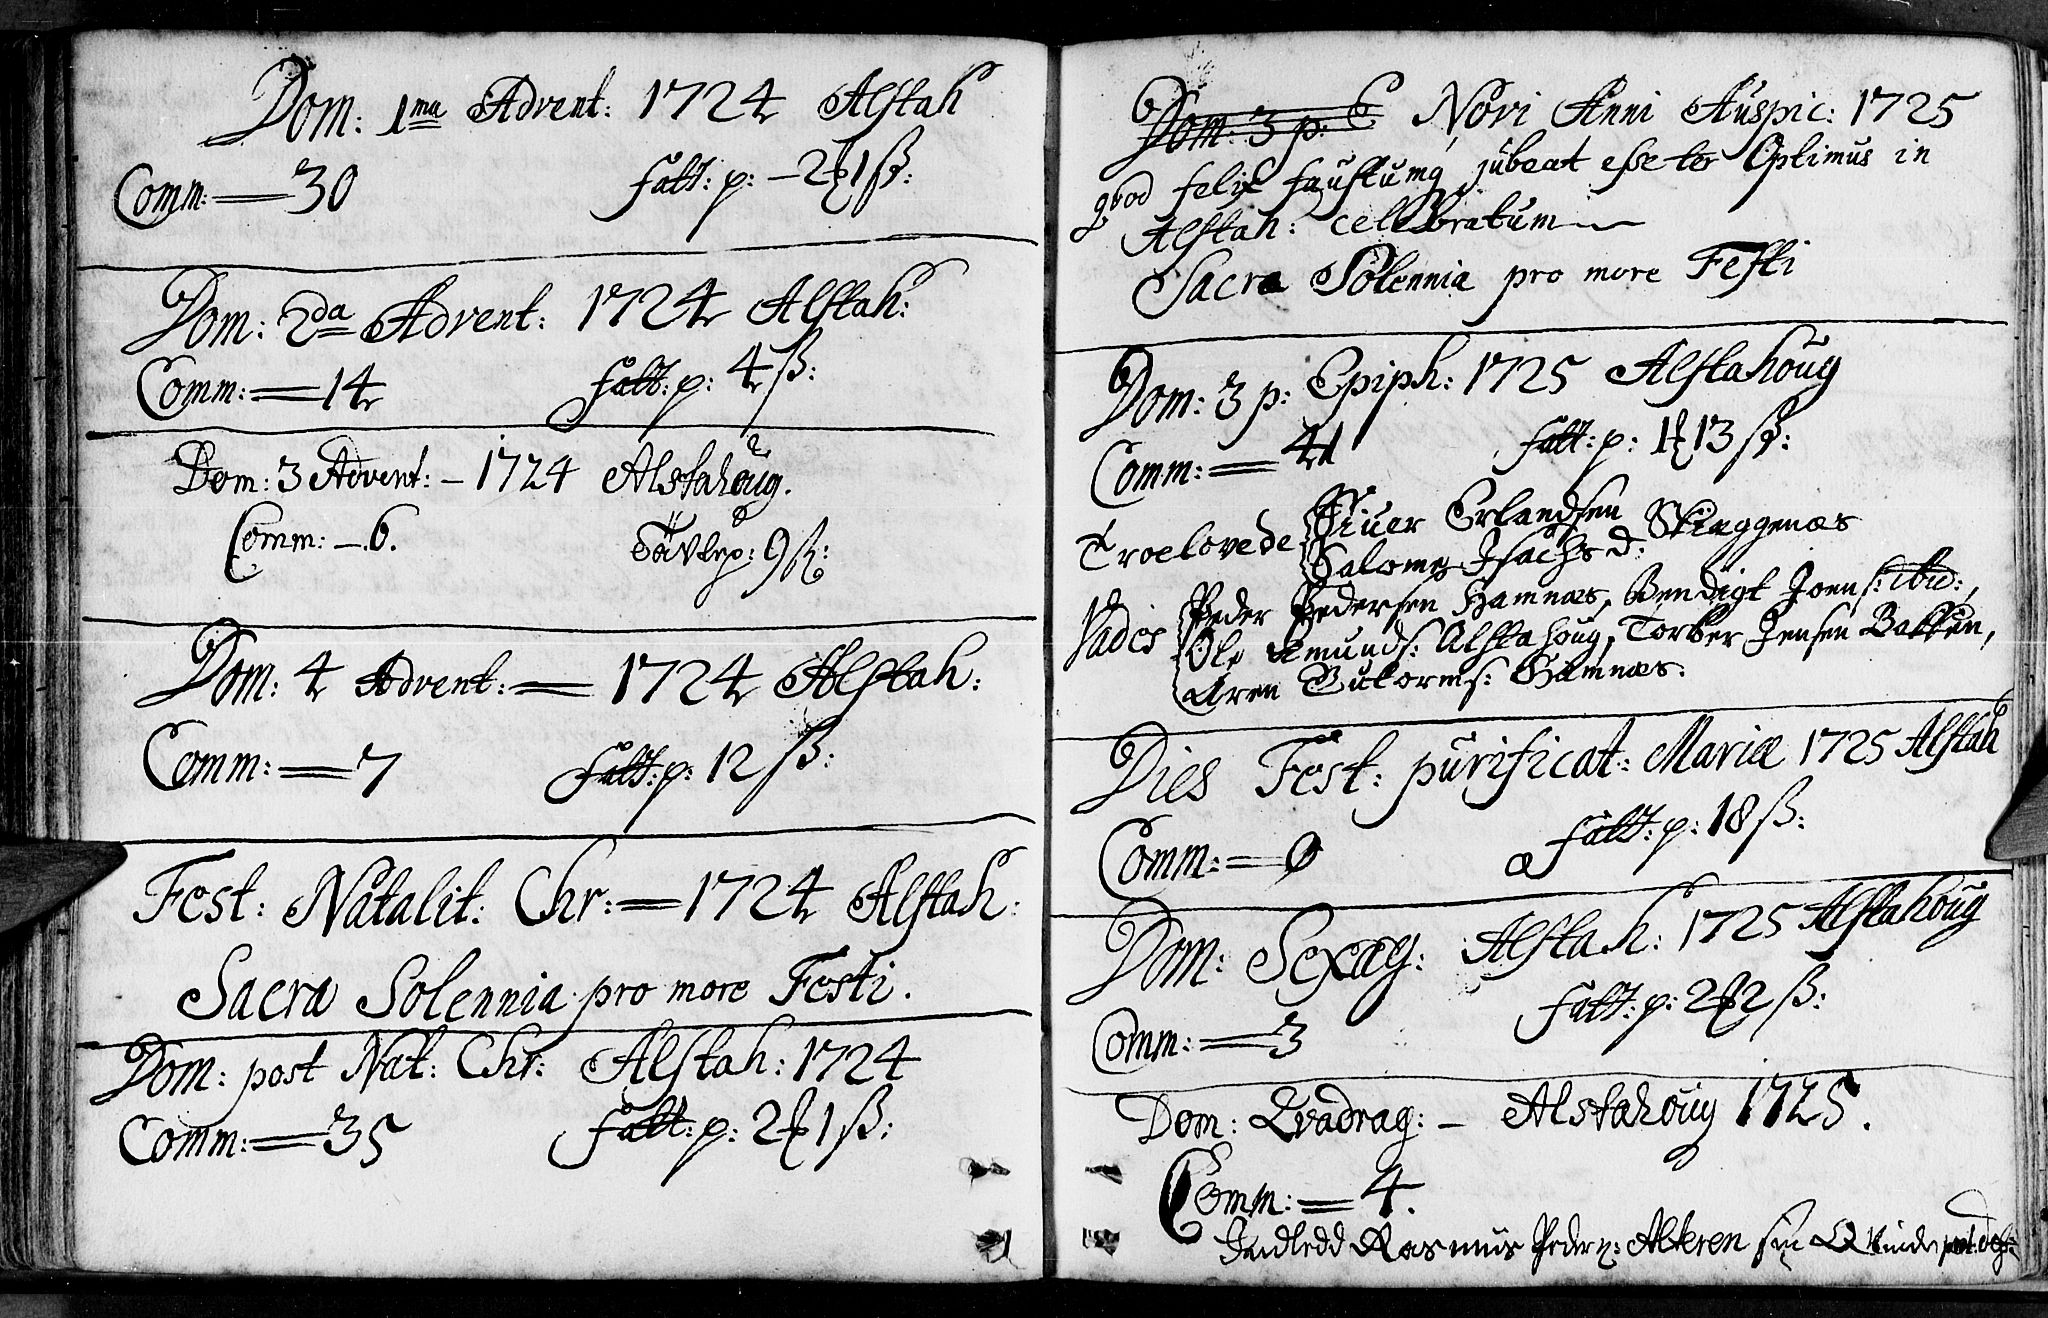 Dom: 1ma Advent: 1724 Alstah
Comm: = 30 fatt: p: - 2 1 ß:
Dom: 2da Advent: 1724 Alstah:
Comm: = 14 fatt: p: 4 ß:
Dom: 3 Advent: - 1724 Alstahoug.
Comm: - 6. Tavlep: 9 ß:
Dom: 4 Advent: = 1724 Alstah:
Comm: = 7 fatt: p: 12 ß:
Fest: Natalit: Chr: = 1724 Alstah:
Sacra Solennia pro more Festi.
Dom: post Nat: Chr: Alstah: 1724
Comm: = 35 fatt: p: 2 1 ß:
Dom: 3 p: E Novi Anni Auspic: 1725
qvod felix faustumq jubeat esse ter Optimus in
Alstah: celebratum
Sacra Solennia pro more Festi
Dom: 3 p: Epiph: 1725 Alstahoug
Comm: = 41 fatt: p: 1 13 ß:
Troelovede Siuer Erlandsen
Salome Isachsd: Skinggenæs
Vades Peder Pedersen Hamnæs, Bendigt Joens: ibid:,
Ole Amunds: Alstahoug, Torber Jensen Bakken,
Aren Gutorms: Hamnæs.
Dies Fest: purificat: Mariæ 1725 Alstah
Comm: = 0 fatt: p: 18 ß:
Dom: Sexag: Alstah: 1725 Alstahoug
Comm: = 3 fatt: p: 2 2 ß:
Dom: Qvadrag: - Alstahoug 1725.
Comm: = 4.
Indledd Rasmus Peders: Alteren sin Qvinde